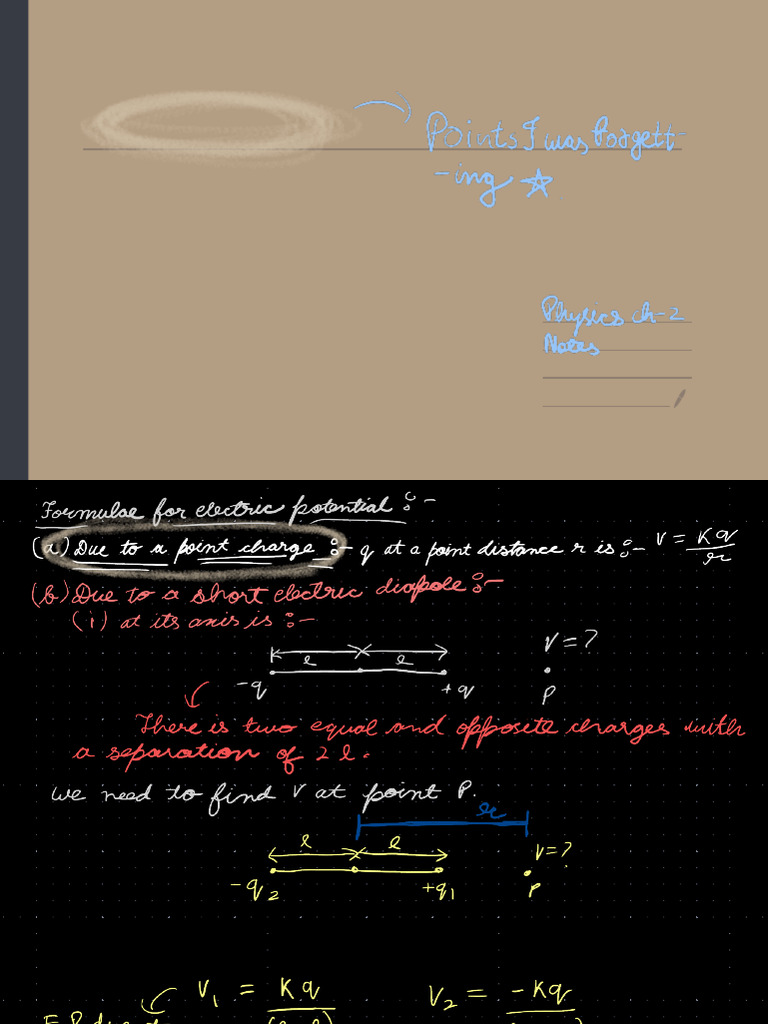 Points I was forgett-
-ing ☆
Physics ch-2
Notes
Formulae for electric potential :-
(a) Due to a point charge :- q at a point distance r is :- V = Kq/r
(b) Due to a short electric diapole :-
(i) at its axis is :-
V = ?
l l
-q +q P
There is two equal and opposite charges with
a separation of 2l.
we need to find V at point P.
r
l l V=?
-q2 +q1 P
V1 = Kq V2 = -Kq